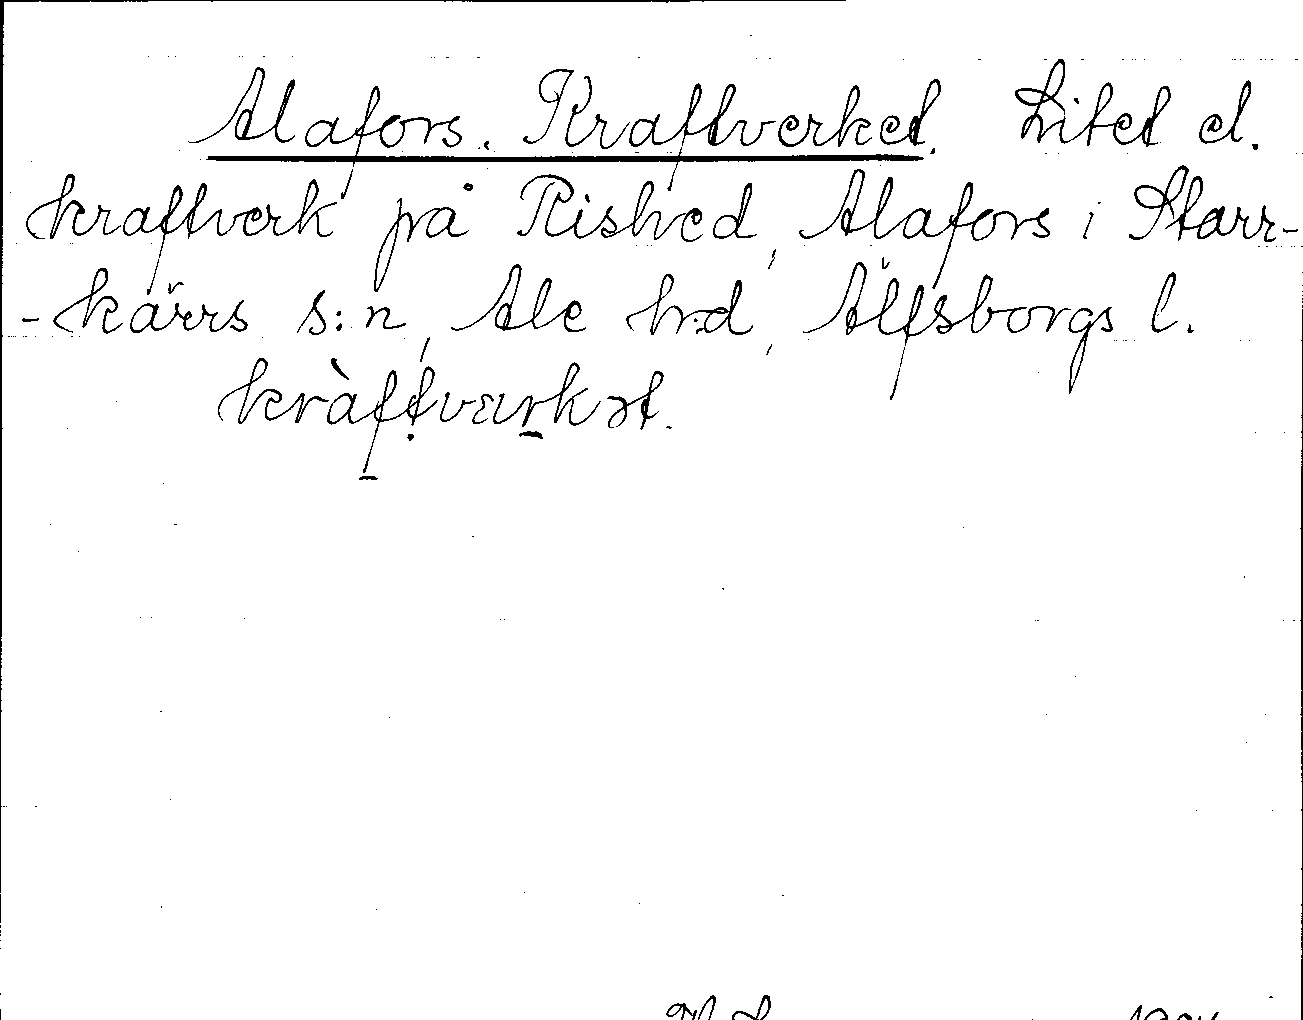 Alafors. Kraftverket. Litet el.
kraftverk på Rished, Alafors i Starr-
-kärrs s:n, Ale h:d, Älfsborgs l.
kràftværkət.